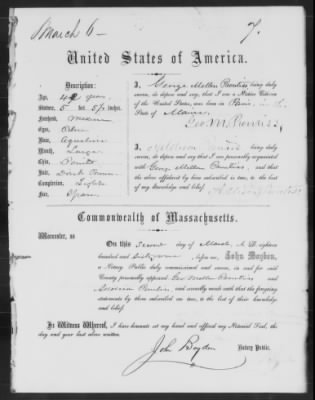 March 6 — 7.
United States of America.
Description:
Age, 42 years.
Stature, 5 5½ inches.
Forehead, Medium
Eyes,
Nose, Aquiline
Mouth, Large
Chin, Pointed
Hair, Dark Brown
Complexion, Light
Face, Spare
I, George Mellen Prentiss being duly
sworn, do depose and say, that I am a Native Citizen
of the United States, was born in Paris, in the
State of Maine.
Geo. M. Prentiss,
I, Addison Prentiss being duly sworn,
do depose and say that I am personally acquainted
with George Mellen Prentiss and that
the above affidavit by him subscribed is true, to the best
of my knowledge and belief.
Addison Prentiss
Commonwealth of Massachusetts.
Worcester, ss
On this Second day of March, A. D. eighteen
hundred and before me, John Boyden,
a Notary Public duly commissioned and sworn, in and for said
County personally appeared Geo Mellen Prentiss and
Addison Prentiss and severally made oath that the foregoing
statements by them subscribed are true, to the best of their knowledge
and belief.
In Witness Whereof, I have hereunto set my hand and affixed my Notarial Seal, the
day and year last above written.
John Boyden
Notary Public.